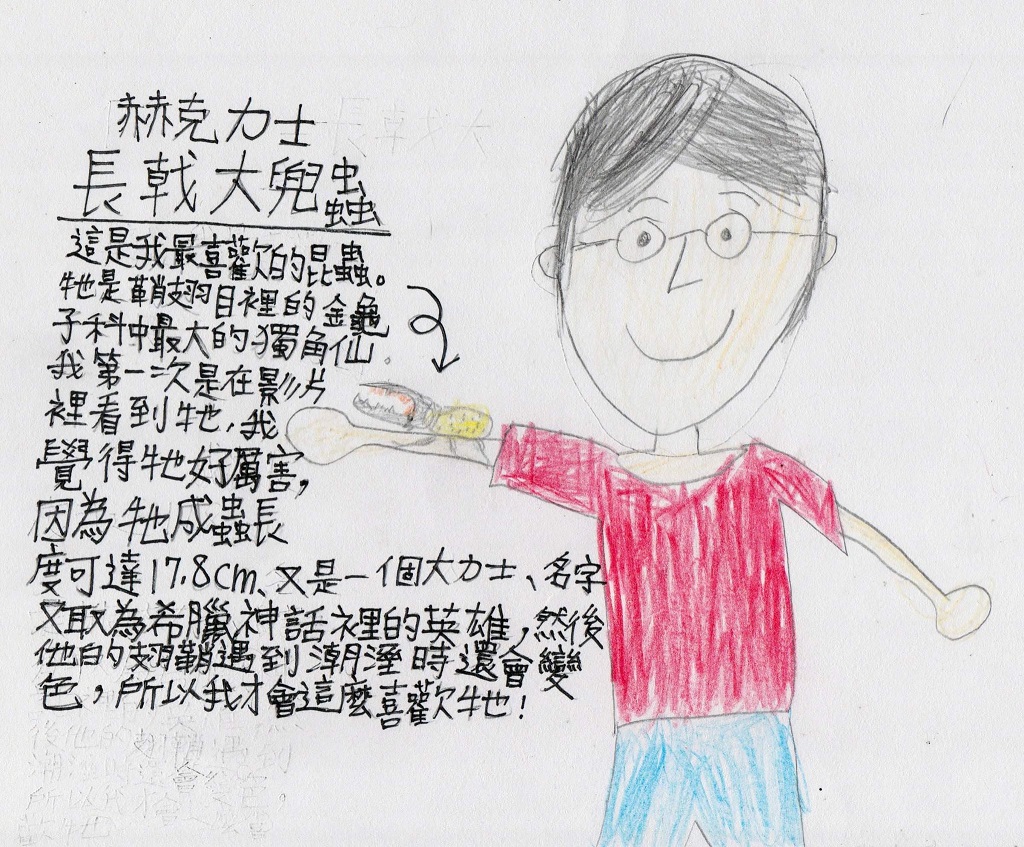 赫克力士
長戟大兜蟲
這是我最喜歡的昆蟲。
牠是鞘翅目裡的金龜
子科中最大的獨角仙
我第一次是在影片
裡看到牠,我
覺得牠好厲害,
因為牠成蟲長
度可達17.8cm、又是一個大力士、名字
又取為希臘神話裡的英雄,然後
他的翅鞘遇到潮溼時還會變
色,所以我才會這麼喜歡牠!